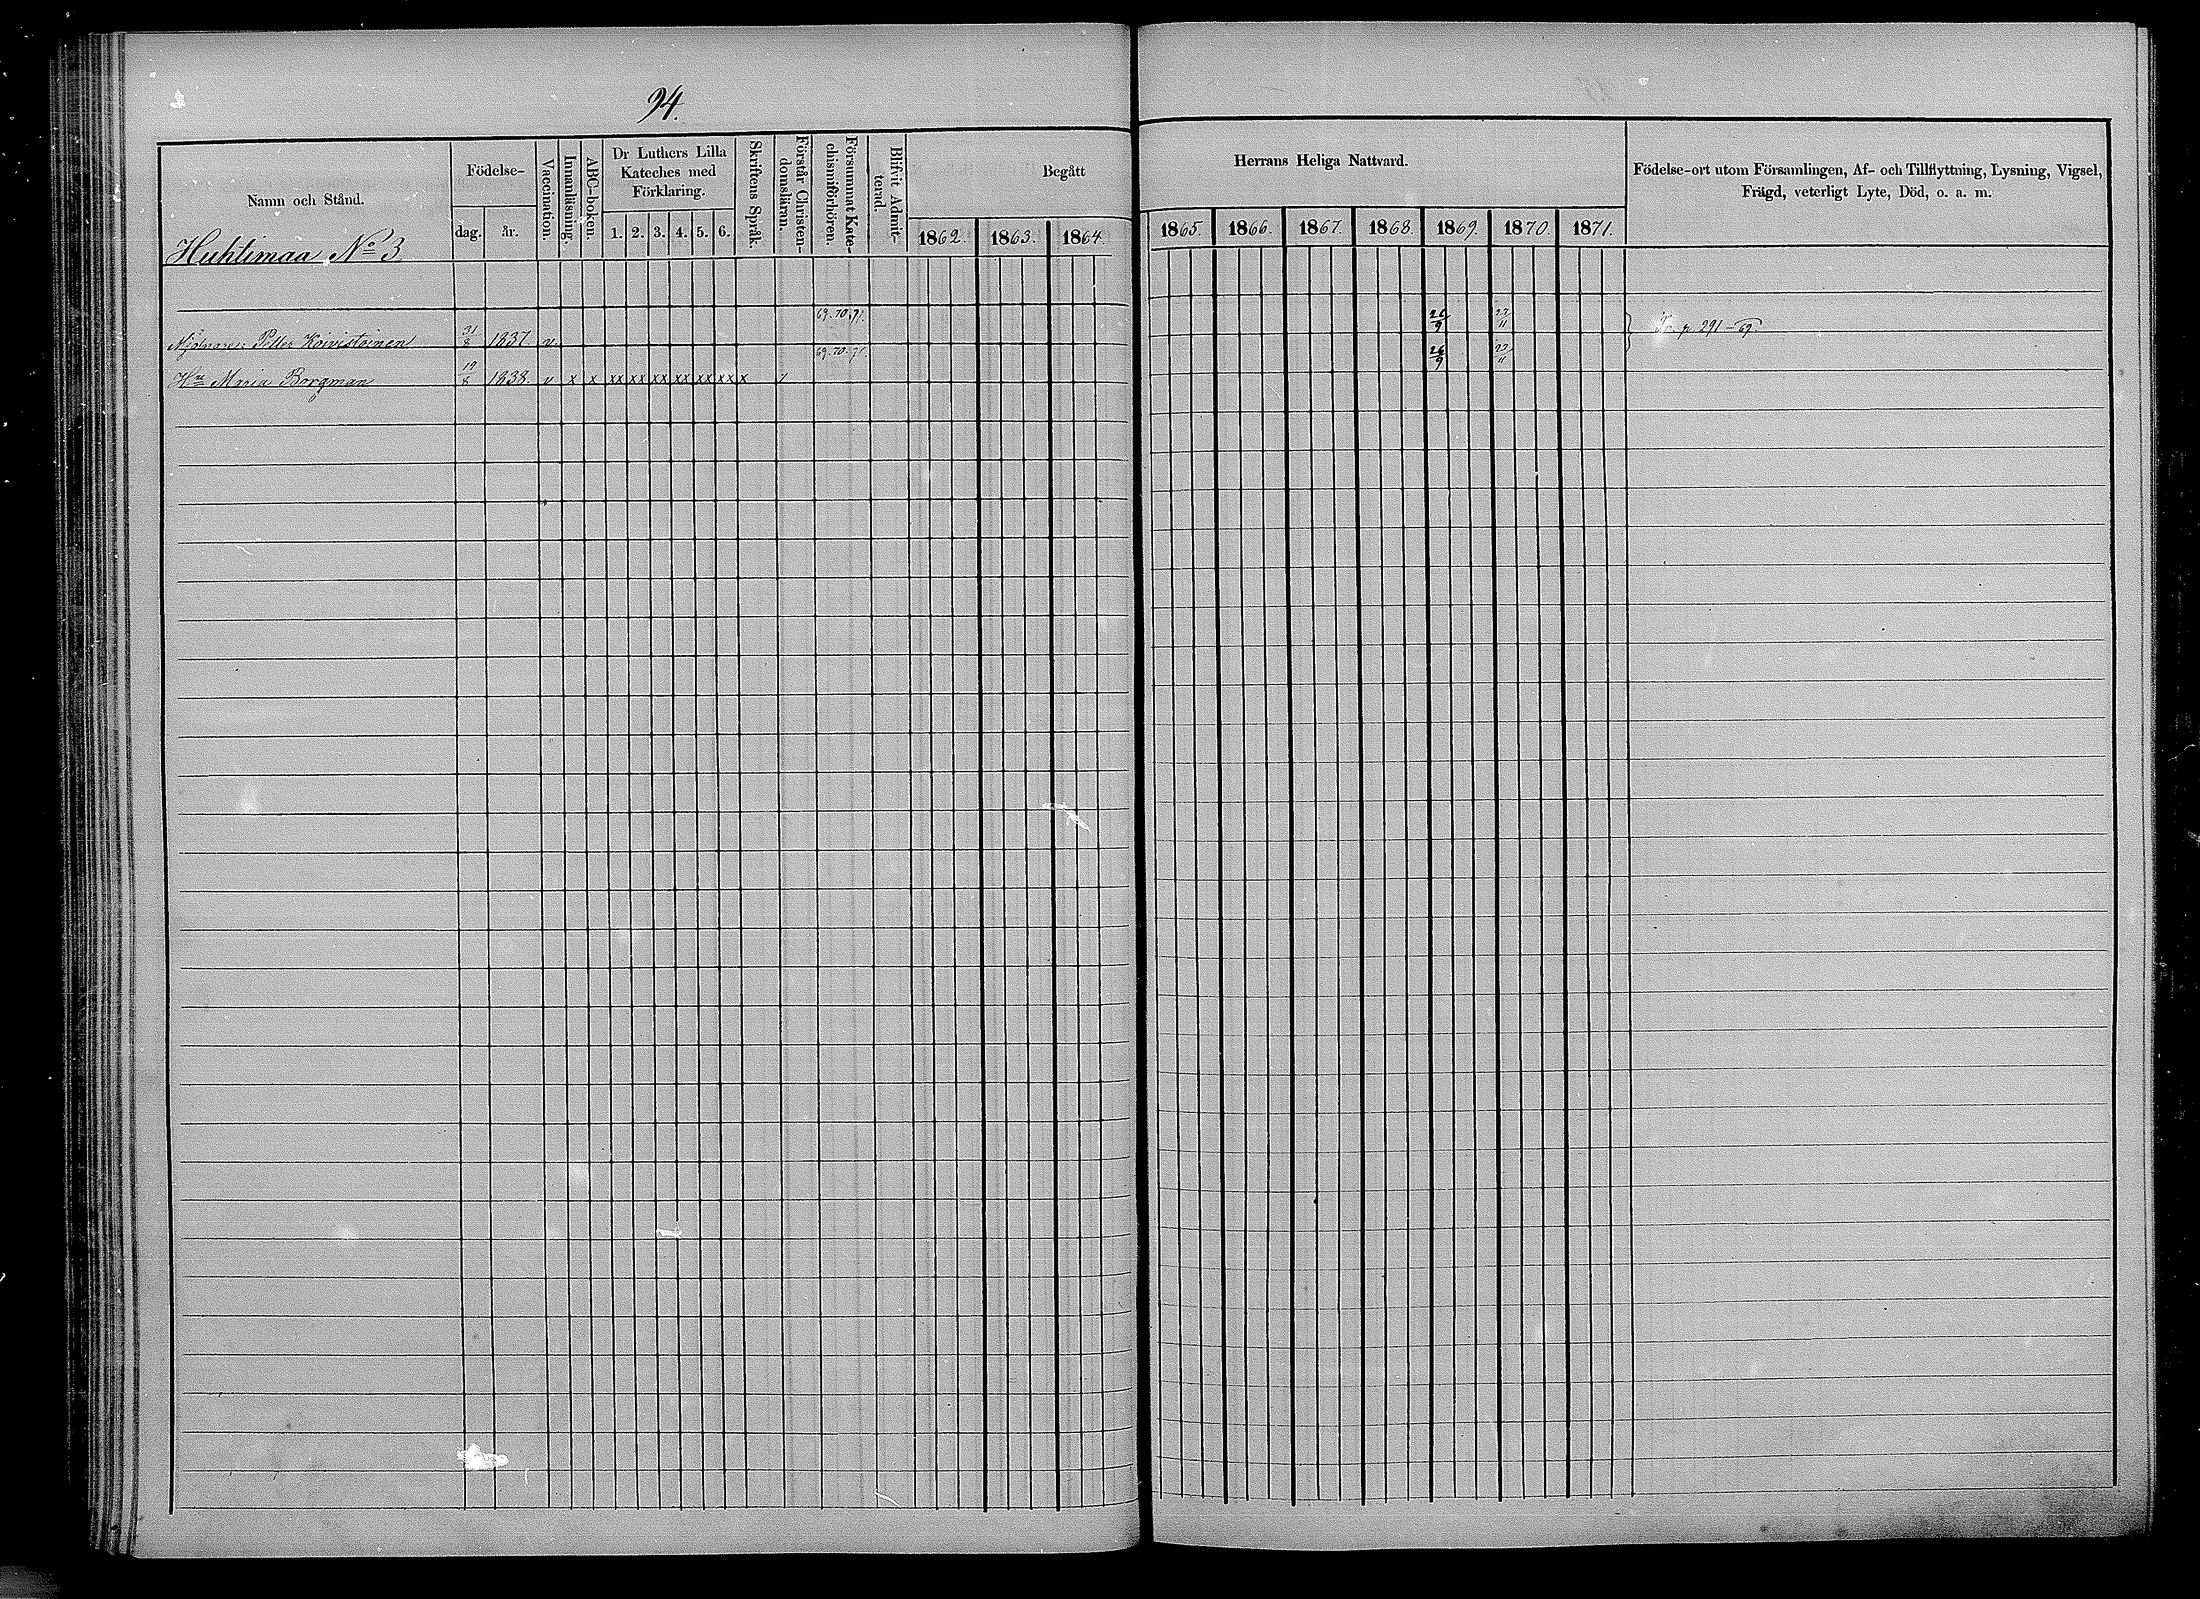 94.
Namn och Stånd.
Födelse-
dag. år.
Vaccination.
Innanläsning.
ABC-boken.
Dr Luthers Lilla
Kateches med
Förklaring.
1. 2. 3. 4. 5. 6.
Skriftens Språk.
Förstår Christen-
domsläran.
Försummat Kate-
chismiförhören.
Blifvit Admit-
terad.
Begått
1862. 1863. 1864.
Herrans Heliga Nattvard.
1865. 1866. 1867. 1868. 1869. 1870. 1871.
Födelse-ort utom Församlingen, Af- och Tillflyttning, Lysning, Vigsel,
Frägd, veterligt Lyte, Död, o. a. m.
Huhtimaa No 3
Petter Koivistoinen 31/8 1837 v 69.70.71. 26/9 22/11 p. 291-69
Hu Maria Borgman 19/8 1838. v x x xx xx xx xx xx xxx x / 69.70.71. 26/9 22/11